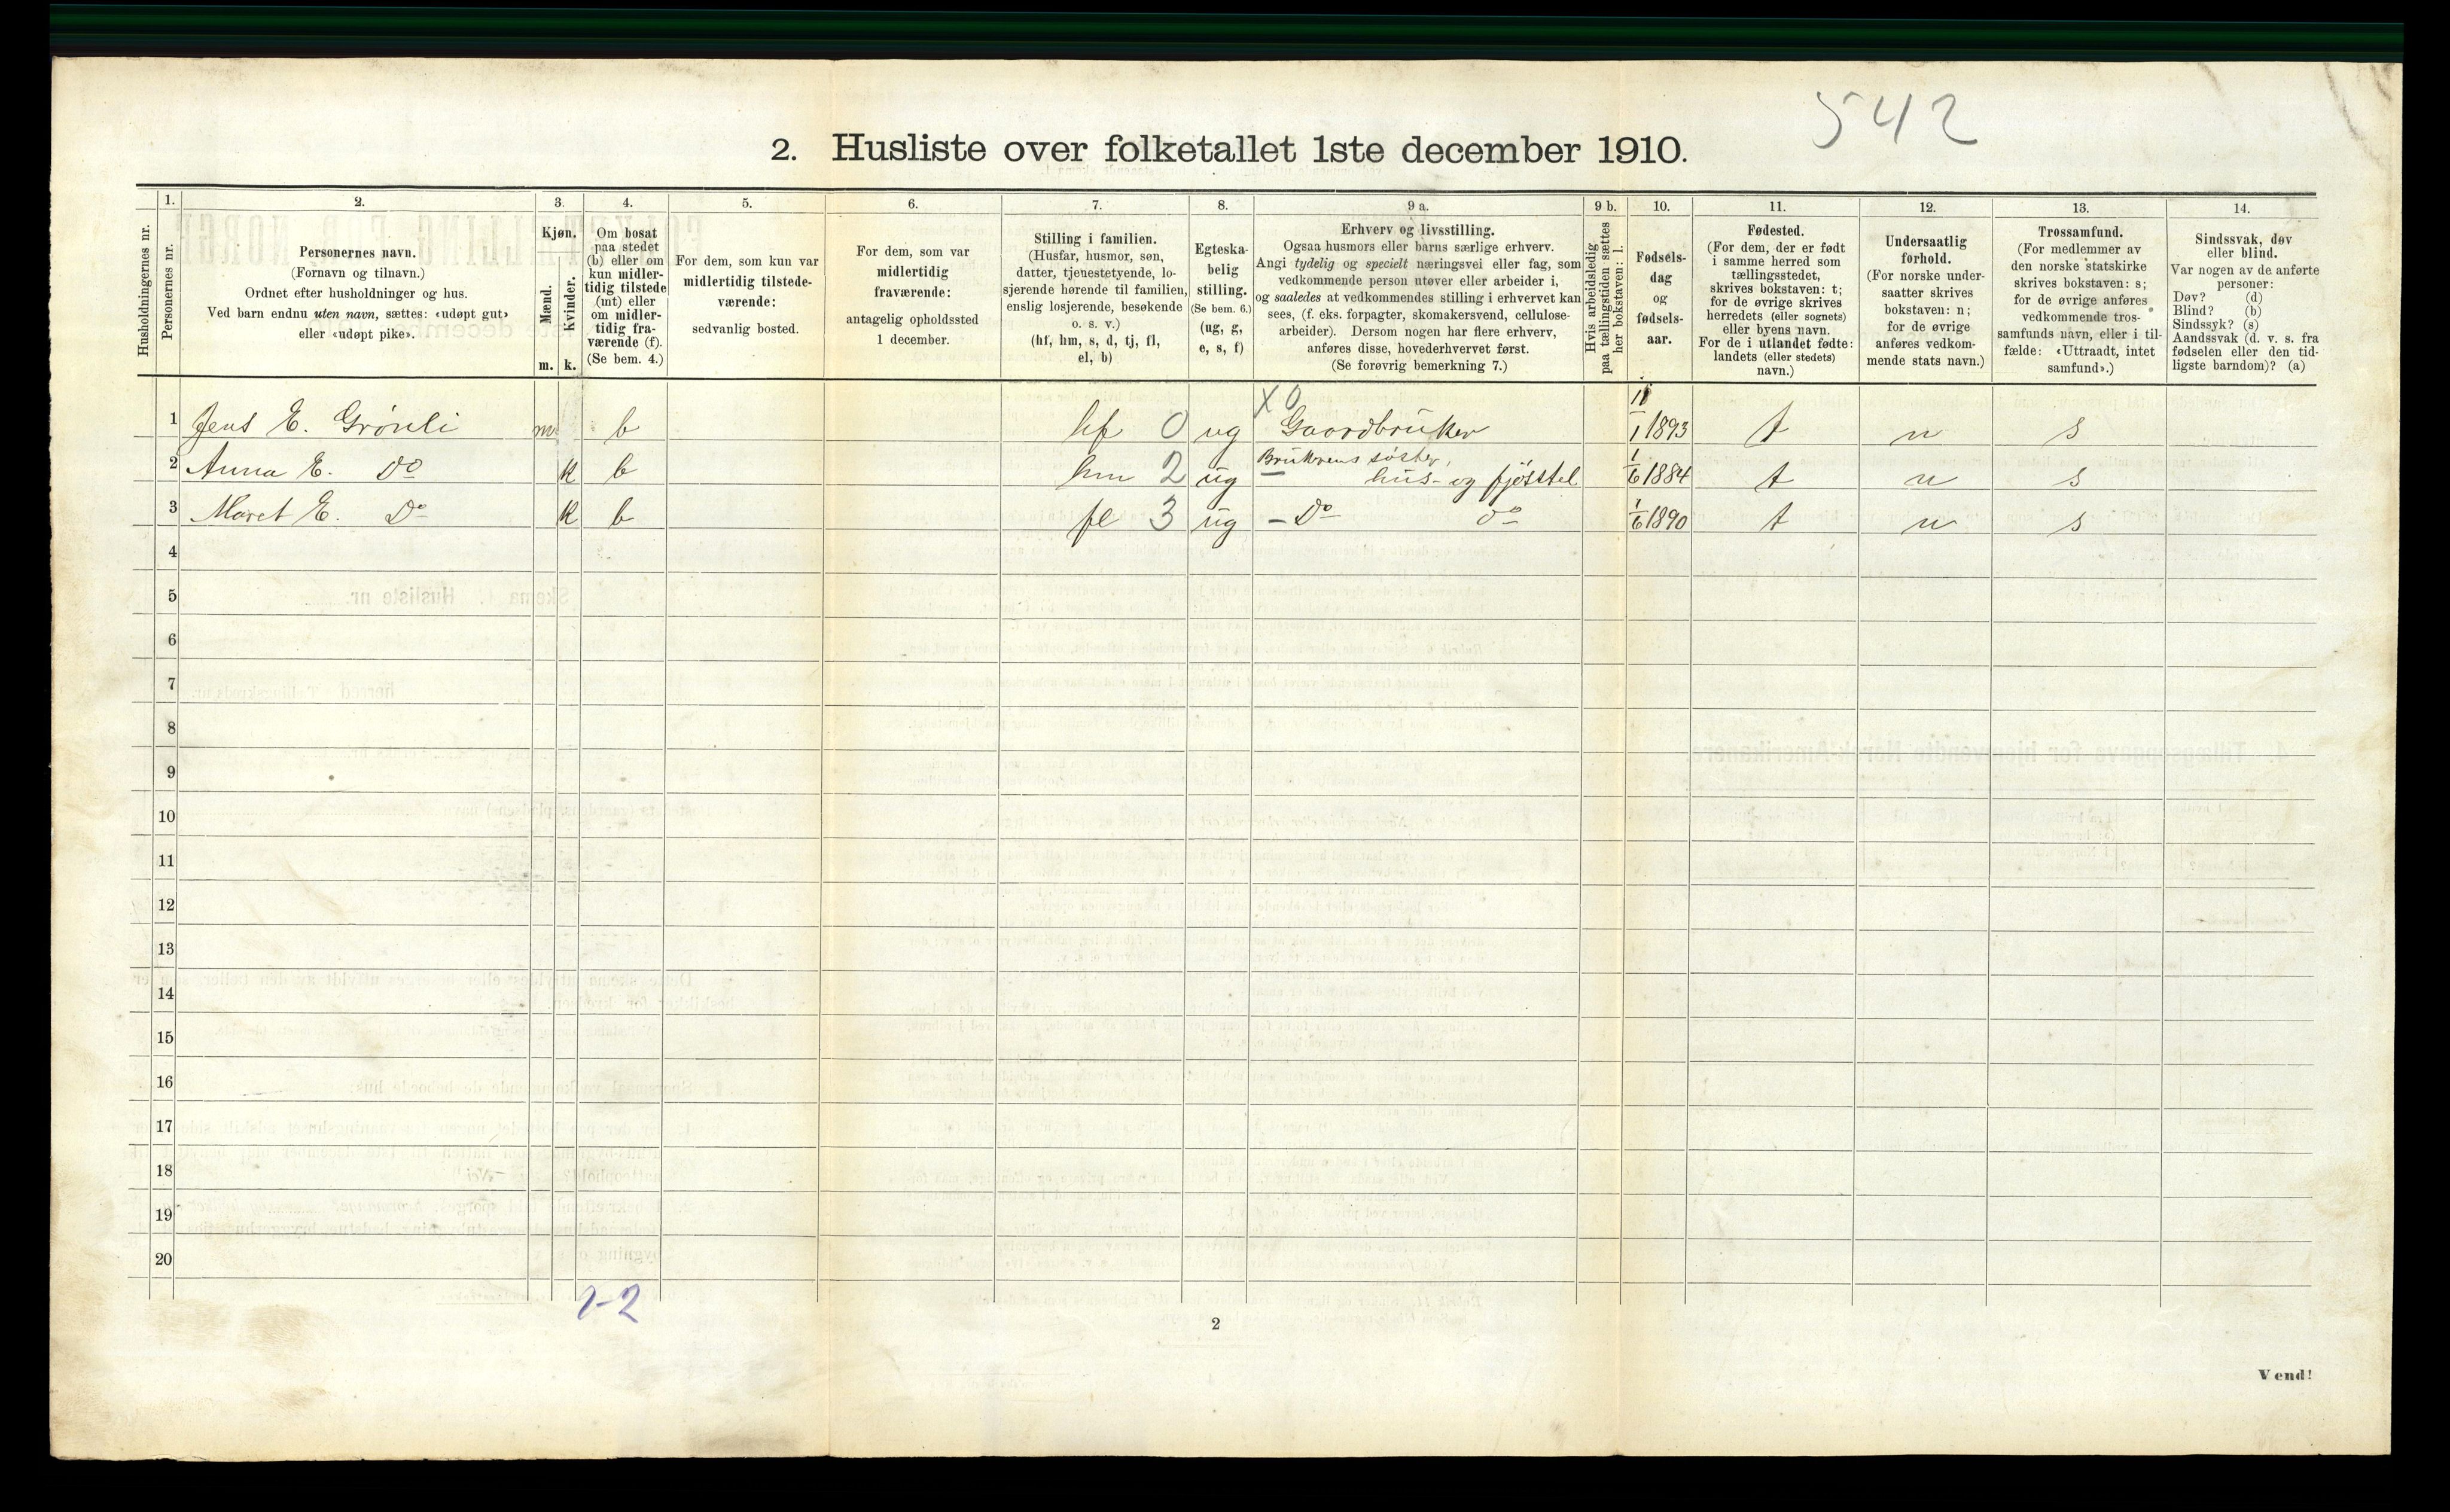 542
2. Husliste over folketallet 1ste december 1910.
Husholdningernes nr.
1.
Personernes nr.
2.
Personernes navn.
(Fornavn og tilnavn.)
Ordnet efter husholdninger og hus.
Ved barn endnu uten navn, sættes: «udøpt gut»
eller «udøpt pike».
3.
Kjøn.
Mænd.
Kvinder.
m. k.
4.
Om bosat
paa stedet
(b) eller om
kun midler-
tidig tilstede
(mt) eller
om midler-
tidig fra-
værende (f).
(Se bem. 4.)
5.
For dem, som kun var
midlertidig tilstede-
værende:
sedvanlig bosted.
6.
For dem, som var
midlertidig
fraværende:
antagelig opholdssted
1 december.
7.
Stilling i familien.
(Husfar, husmor, søn,
datter, tjenestetyende, lo-
sjerende hørende til familien,
enslig losjerende, besøkende
o. s. v.)
(hf, hm, s, d, tj, fl,
el, b)
8.
Egteska-
belig
stilling.
(Se bem. 6.)
(ug, g,
e, s, f)
9 a.
Erhverv og livsstilling.
Ogsaa husmors eller barns særlige erhverv.
Angi tydelig og specielt næringsvei eller fag, som
vedkommende person utøver eller arbeider i,
og saaledes at vedkommendes stilling i erhvervet kan
sees, (f. eks. forpagter, skomakersvend, cellulose-
arbeider). Dersom nogen har flere erhverv,
anføres disse, hovederhvervet først.
(Se forøvrig bemerkning 7.)
9 b.
Hvis arbeidsledig
paa tællingstiden sættes
her bokstaven: l.
10.
Fødsels-
dag
og
fødsels-
aar.
11.
Fødested.
(For dem, der er født
i samme herred som
tællingsstedet,
skrives bokstaven: t;
for de øvrige skrives
herredets (eller sognets)
eller byens navn.
For de i utlandet fødte:
landets (eller stedets)
navn.)
12.
Undersaatlig
forhold.
(For norske under-
saatter skrives
bokstaven: n;
for de øvrige
anføres vedkom-
mende stats navn.)
13.
Trossamfund.
(For medlemmer av
den norske statskirke
skrives bokstaven: s;
for de øvrige anføres
vedkommende tros-
samfunds navn, eller i til-
fælde: «Uttraadt, intet
samfund».)
14.
Sindssvak, døv
eller blind.
Var nogen av de anførte
personer:
Døv? (d)
Blind? (b)
Sindssyk? (s)
Aandssvak (d. v. s. fra
fødselen eller den tid-
ligste barndom)? (a)
X 0
1 Jens E. Grönli m b hf 0 ug Gaardbruker 1893 t n s
Brukerens söster,
2 Anna E. Do k b hm 2 ug hus- og fjösstel 1/6 1884 t n s
3 Maret E. Do k b fl 3 ug – Do Do 1/6 1890 t n s
4
5
6
7
8
9
10
11
12
13
14
15
16
17
18
19
20
1-2
2
Vend!